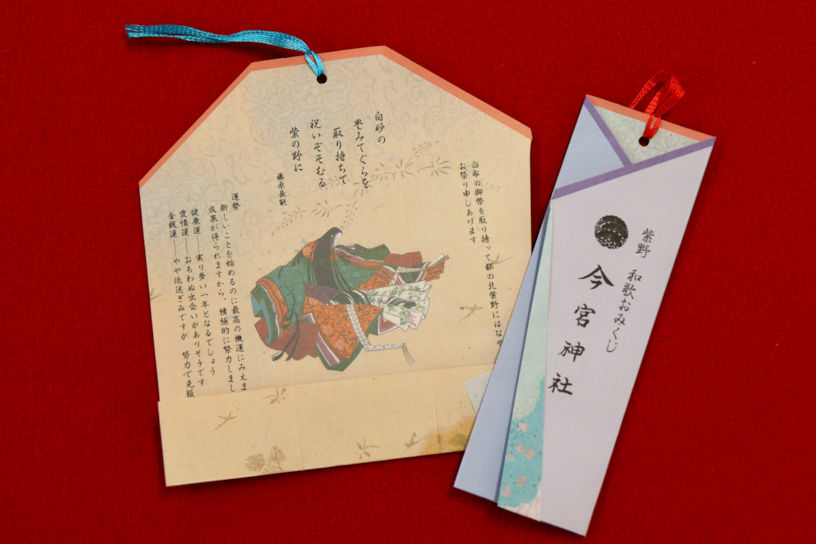 白布の御幣を取り持って都の北紫野にはなや
お祭り申しあげます
白妙の
豊みてぐらを
取り持ちて
祝いぞそむる
紫の野に
藤原長能
運勢
新しいことを始めるのに最高の機運にみえま
成果が得られますから、積極的に努力しまし
健康運――実り多い一年となるでしょう
愛情運――おもわぬ出会いがありそうです
金銭運――やや低迷ぎみですが 努力で克服
紫野 和歌おみくじ
今宮神社